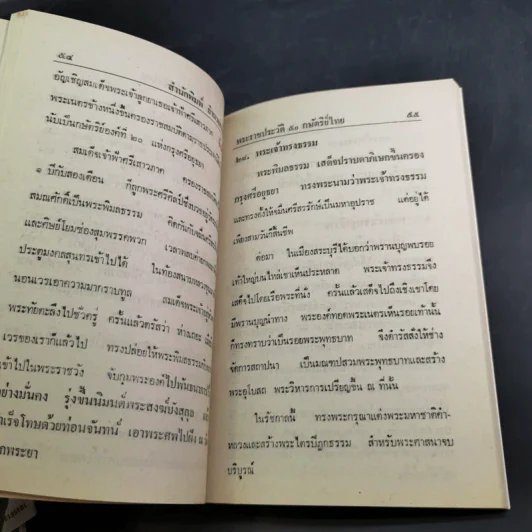 ๕๔
สำนักพิมพ์
อัญเชิญสมเด็จพระเจ้าลูกยาเธอเจ้าฟ้าศรีเสาวภาคย์
พระเนตรข้างหนึ่งขึ้นครองราชสมบัติ
นับเป็นกษัตริย์องค์ที่ ๒๐ แห่งกรุงศรีอยุธยา
สมเด็จเจ้าฟ้าศรีเสาวภาคย์
๑ ปีกับสองเดือน ก็ถูกพระศรีศิลป์ซึ่งบวชอยู่
สมณศักดิ์เป็นพระพิมลธรรม คิดกบฏกับ
และศิษย์โยมซ่องสุมพรรคพวก เวลาพลบค่ำ
ประตูมงคลสุนทรเข้าไปได้ ในท้องสนามหลวง
นอนเวรเอาความมากราบทูล สมเด็จพระเจ้า
พระทัยตะลึงไปชั่วครู่ ครั้นแล้วตรัสว่า
เวรของเราก็แล้วไป ทรงปล่อยให้พระพิมลธรรม
เข้าไปในพระราชวัง จับกุมพระองค์ไปพันธนาการ
อย่างมั่นคง รุ่งขึ้นนิมนต์พระสงฆ์บังสุกุล
เร็จโทษด้วยท่อนจันทน์ เอาพระศพไปฝัง ณ วัด
พระราชประวัติ ๕๐ กษัตริย์ไทย ๕๕
๒๘. พระเจ้าทรงธรรม
พระพิมลธรรม เสด็จปราบดาภิเษกขึ้นครอง
กรุงศรีอยุธยา ทรงพระนามว่าพระเจ้าทรงธรรม
และทรงตั้งให้จมื่นศรีสรรักษ์เป็นมหาอุปราช แต่อยู่ได้
เพียงสามวันก็สิ้นชีพ
ต่อมา ในเมืองสระบุรีได้บอกว่าพรานบุญพบรอย
เท้าใหญ่บนไหล่เขาเห็นประหลาด พระเจ้าทรงธรรมจึง
เสด็จไปโดยเรือพระที่นั่ง ครั้นแล้วเสด็จไปถึงเชิงเขาโดย
มีพรานบุญนำทาง พระองค์ทอดพระเนตรเห็นรอยเท้านั้น
ก็ทรงทราบว่าเป็นรอยพระพุทธบาท จึงดำรัสสั่งให้ช่าง
จัดการสถาปนา เป็นมณฑปสวมพระพุทธบาทและสร้าง
พระอุโบสถ พระวิหารการเปรียญขึ้น ณ ที่นั้น
ในรัชกาลนี้ ทรงพระกรุณาแต่งพระมหาชาติคำ-
หลวงและสร้างพระไตรปิฎกธรรม สำหรับพระศาสนาจบ
บริบูรณ์